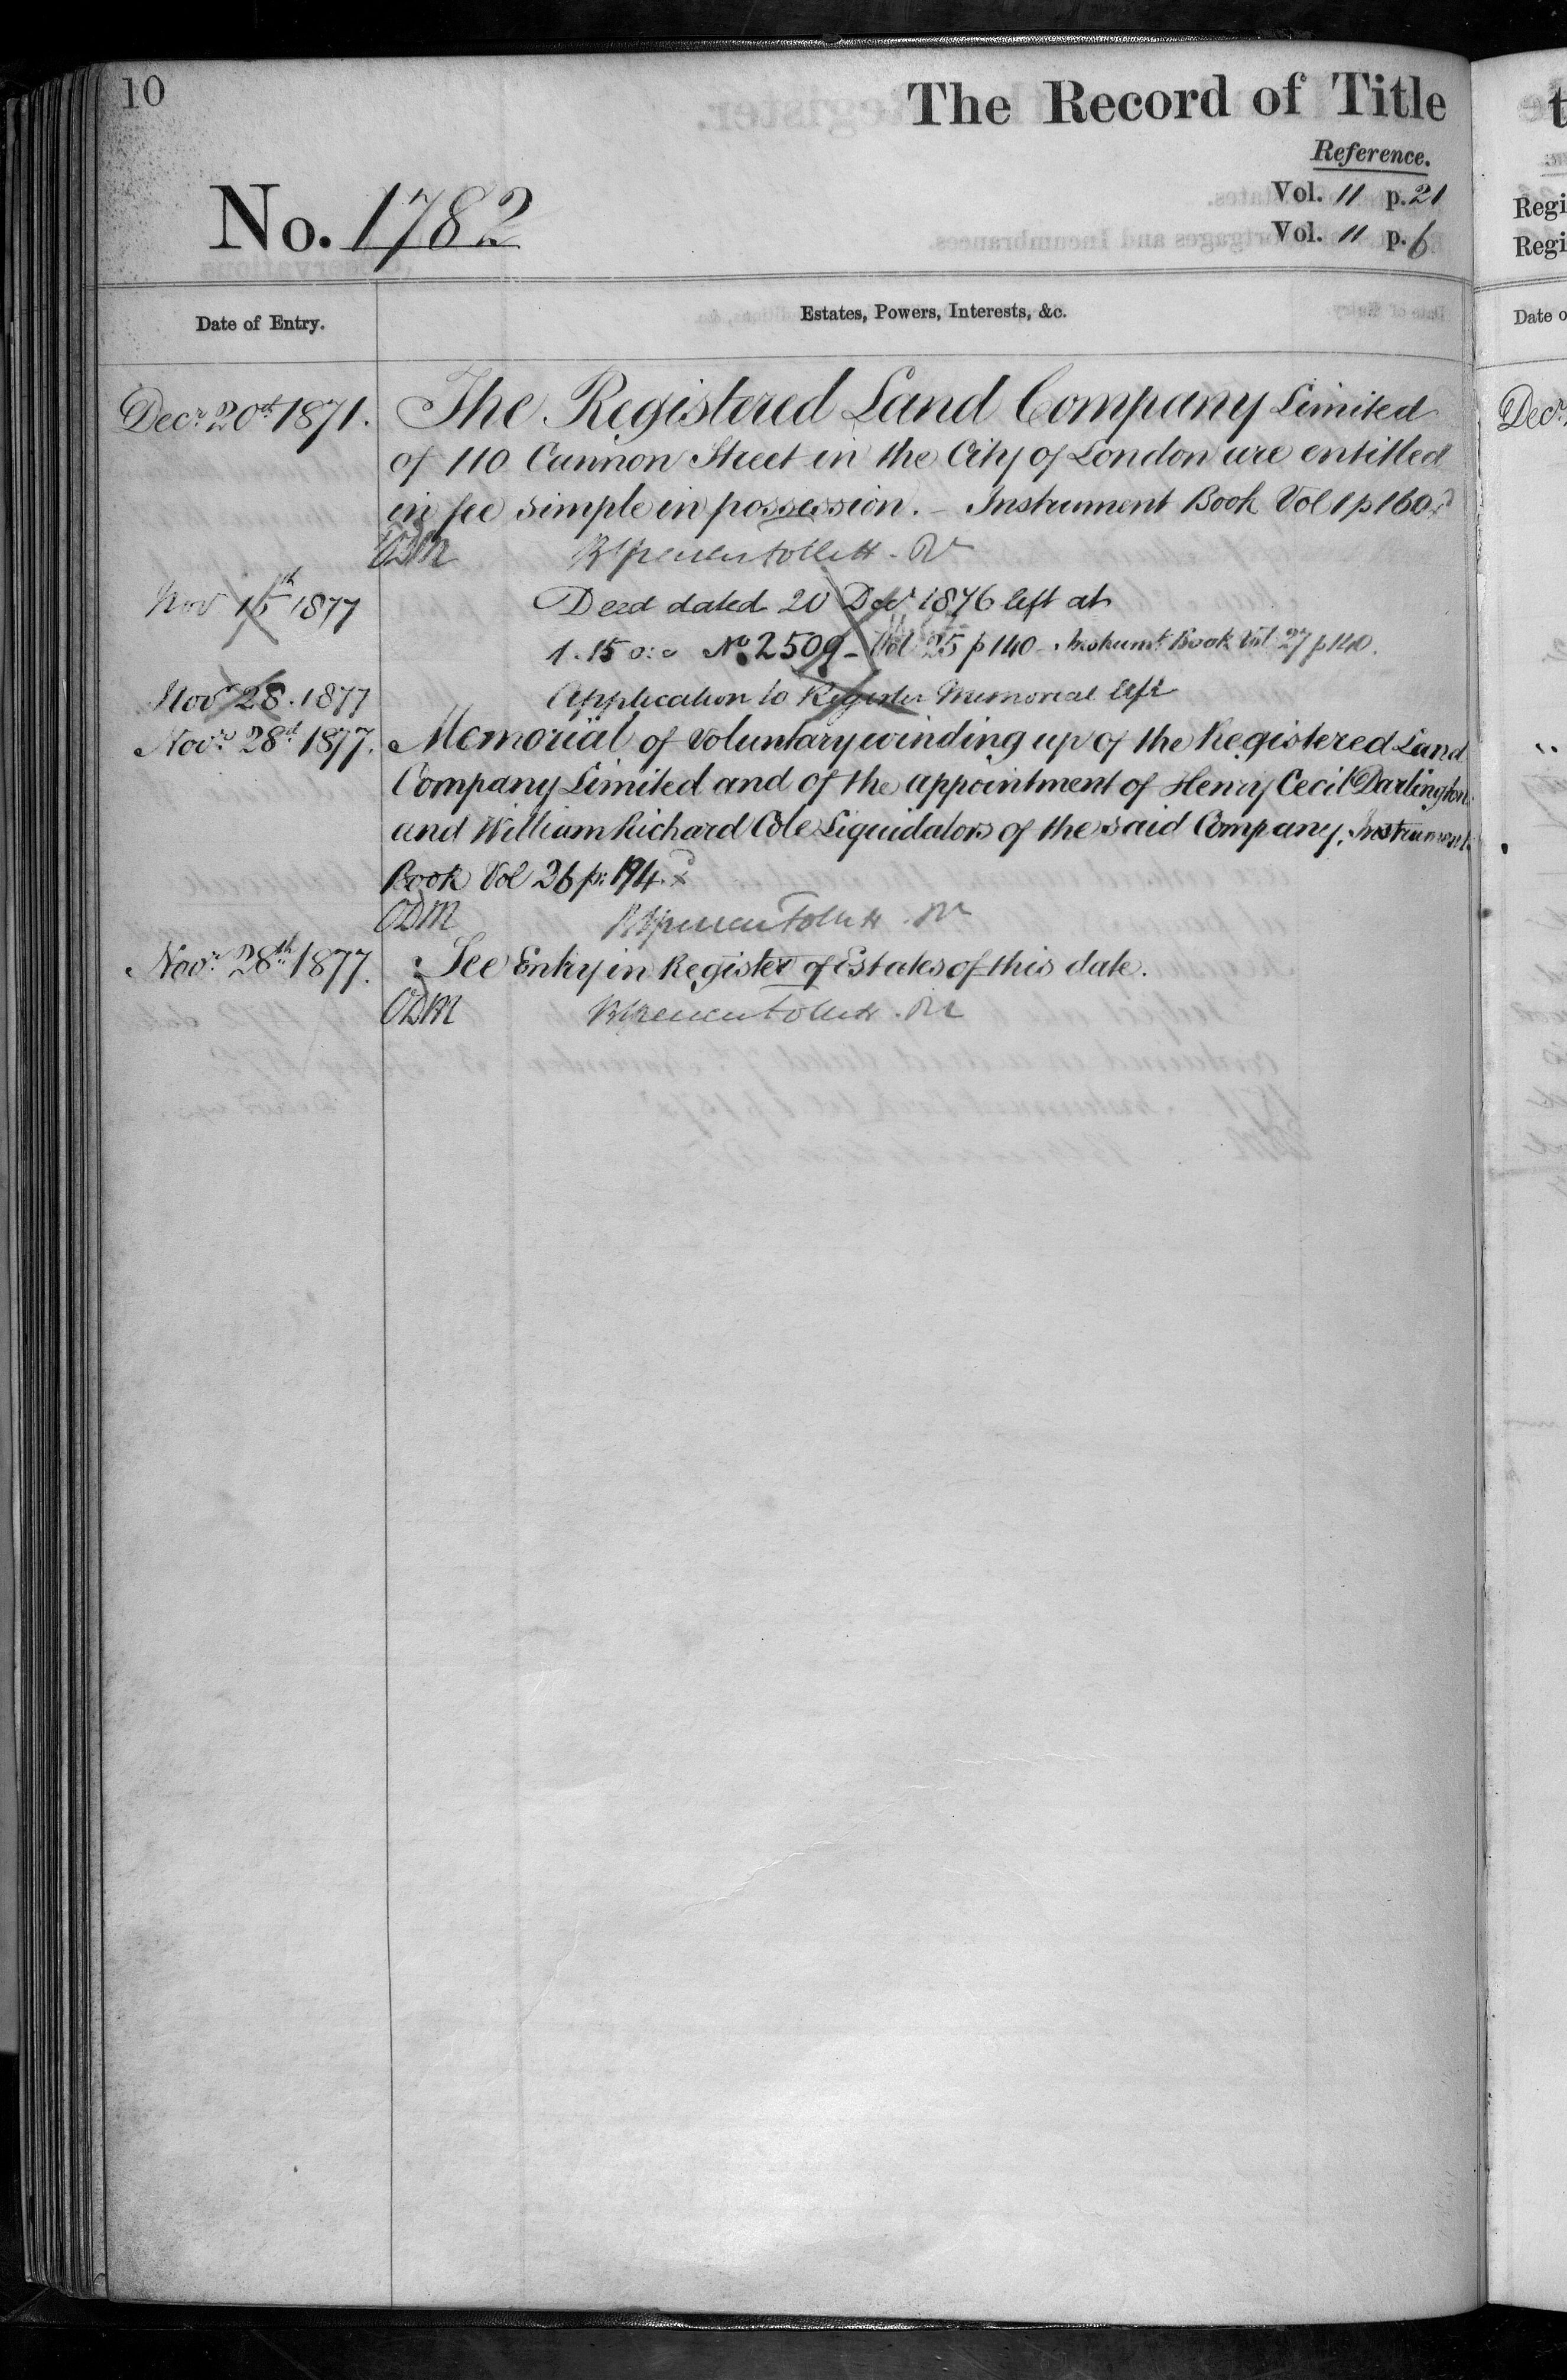 10
The Record of Title
Reference.
Vol. 11 p. 21
No. 1782
Vol. 11 p. 6
Date of Entry.
Estates, Powers, Interests, &c.
Decr. 20th 1871. The Registered Land Company Limited
of 110 Cannon Street in the City of London are entitled
in fee simple in possession. – Instrument Book Vol 1 p 160
Nov 15th 1877 Deed dated 20 Decr 1876 left at
1.15 No. 2509 – Vol 25 p 140 – Instrumt. Book Vol 27 p 140.
Novr 28. 1877 Application to Register Memorial left
Novr. 28th 1877. Memorial of Voluntary winding up of the Registered Land
Company Limited and of the appointment of Henry Cecil Darlington
and William Richard Cole Liquidators of the said Company. Instrument
Book Vol 26 p: 194.
ODM
Novr. 28th 1877. See Entry in Register of Estates of this date.
ODM
t
Regi
Regi
Date o
Decr.